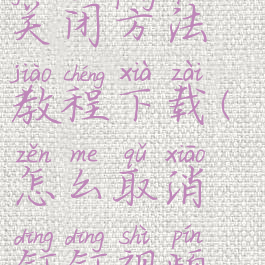 关闭方法
jiào chéng xià zài
教程下载(
zěn me qǔ xiāo
怎么取消
dīng dīng shì pín
钉钉视频